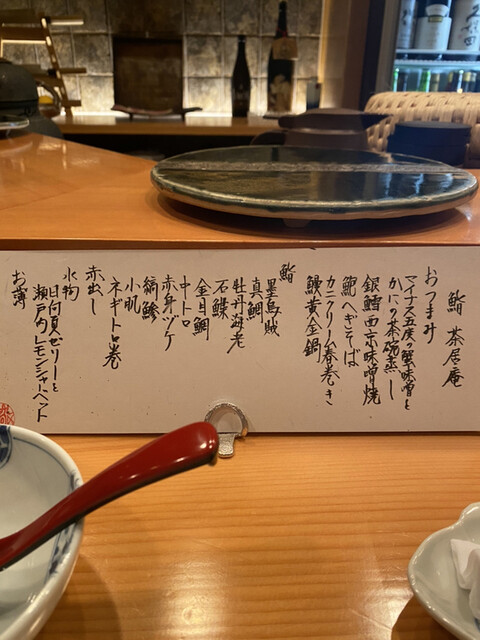 鮨 茶居庵
おつまみ
マイナス五度の蟹味噌と
かにの茶碗蒸し
銀鱈西京味噌焼
鮑へぎそば
カニクリーム春巻き
鰻黄金鍋
鮨
墨烏賊
真鯛
牡丹海老
石鰈
金目鯛
中トロ
赤身ヅケ
縞鯵
小肌
ネギトロ巻
赤出し
水物
日向夏ゼリーと
瀬戸内レモンシャーベット
お薄